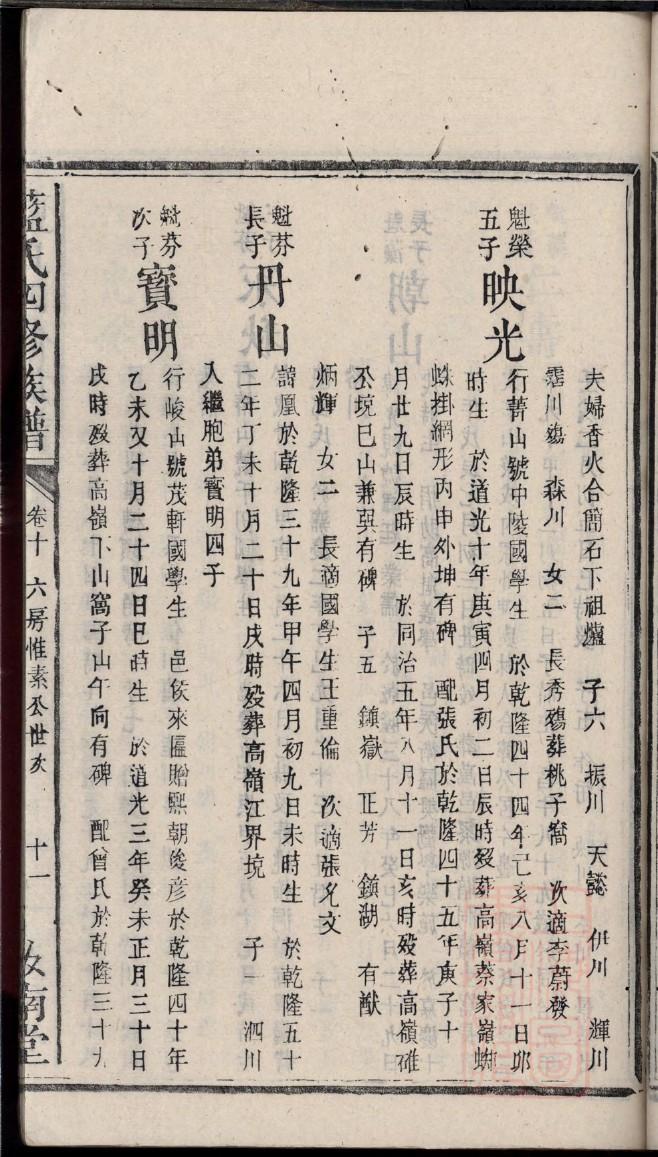 夫婦香火合簡石下祖爐　子六　振川　天懿　伊川　輝川
霑川殤　森川　女二　長秀殤葬桃子窩　次適李蔚發
魁榮五子
映光
行菁山號中陵國學生　於乾隆四十四年己亥八月十一日卯
時生　於道光十年庚寅四月初二日辰時殁葬高嶺蔡家嶺蜘
蛛掛網形丙申外坤有碑　配張氏於乾隆四十五年庚子十
月廿九日辰時生　於同治五年八月十一日亥時殁葬高嶺碓
丕境巳山兼巽有碑　子五　鎮嶽　正芳　鎮湖　有猷
炳輝　女二　長適國學生王重倫　次適張允文
魁芬長子
丹山
諱凰於乾隆三十九年甲午四月初九日未時生　於乾隆五十
二年丁未十月二十日戌時殁葬高嶺江界境　子一　泗川
入繼胞弟寶明四子
魁芬次子
寶明
行峻山號茂軒國學生　邑侯來匾贈熙朝俊彥於乾隆四十年
乙未又十月二十四日巳時生　於道光三年癸未正月三十日
戌時殁葬高嶺下山窩子山午向有碑　配曾氏於乾隆三十九
藍氏四修族譜　卷十　六房惟素公世次　十一　汝南堂